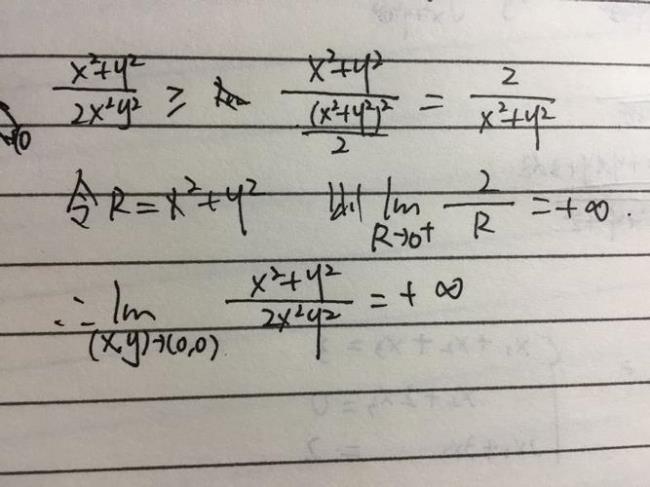 (x²+y²)/(2x²y²) ≥ (x²+y²)/((x²+y²)²/2) = 2/(x²+y²)
令 R = x²+y² 则 lim_{R→0⁺} 2/R = +∞.
∴ lim_{(x,y)→(0,0)} (x²+y²)/(2x²y²) = +∞